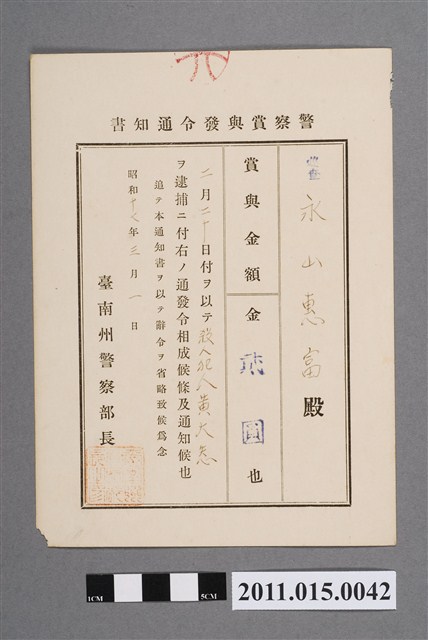 警察賞與發令通知書
永山惠富殿
賞與金額
金貳圓也
二月二十日付ヲ以テ殺人犯人黃大
ヲ逮捕ニ付右ノ通發令相成候條及通知候也
追テ本通知書ヲ以テ辭令ヲ省略致候爲念
昭和十七年三月一日
臺南州警察部長
1CM
5CM
2011.015.0042